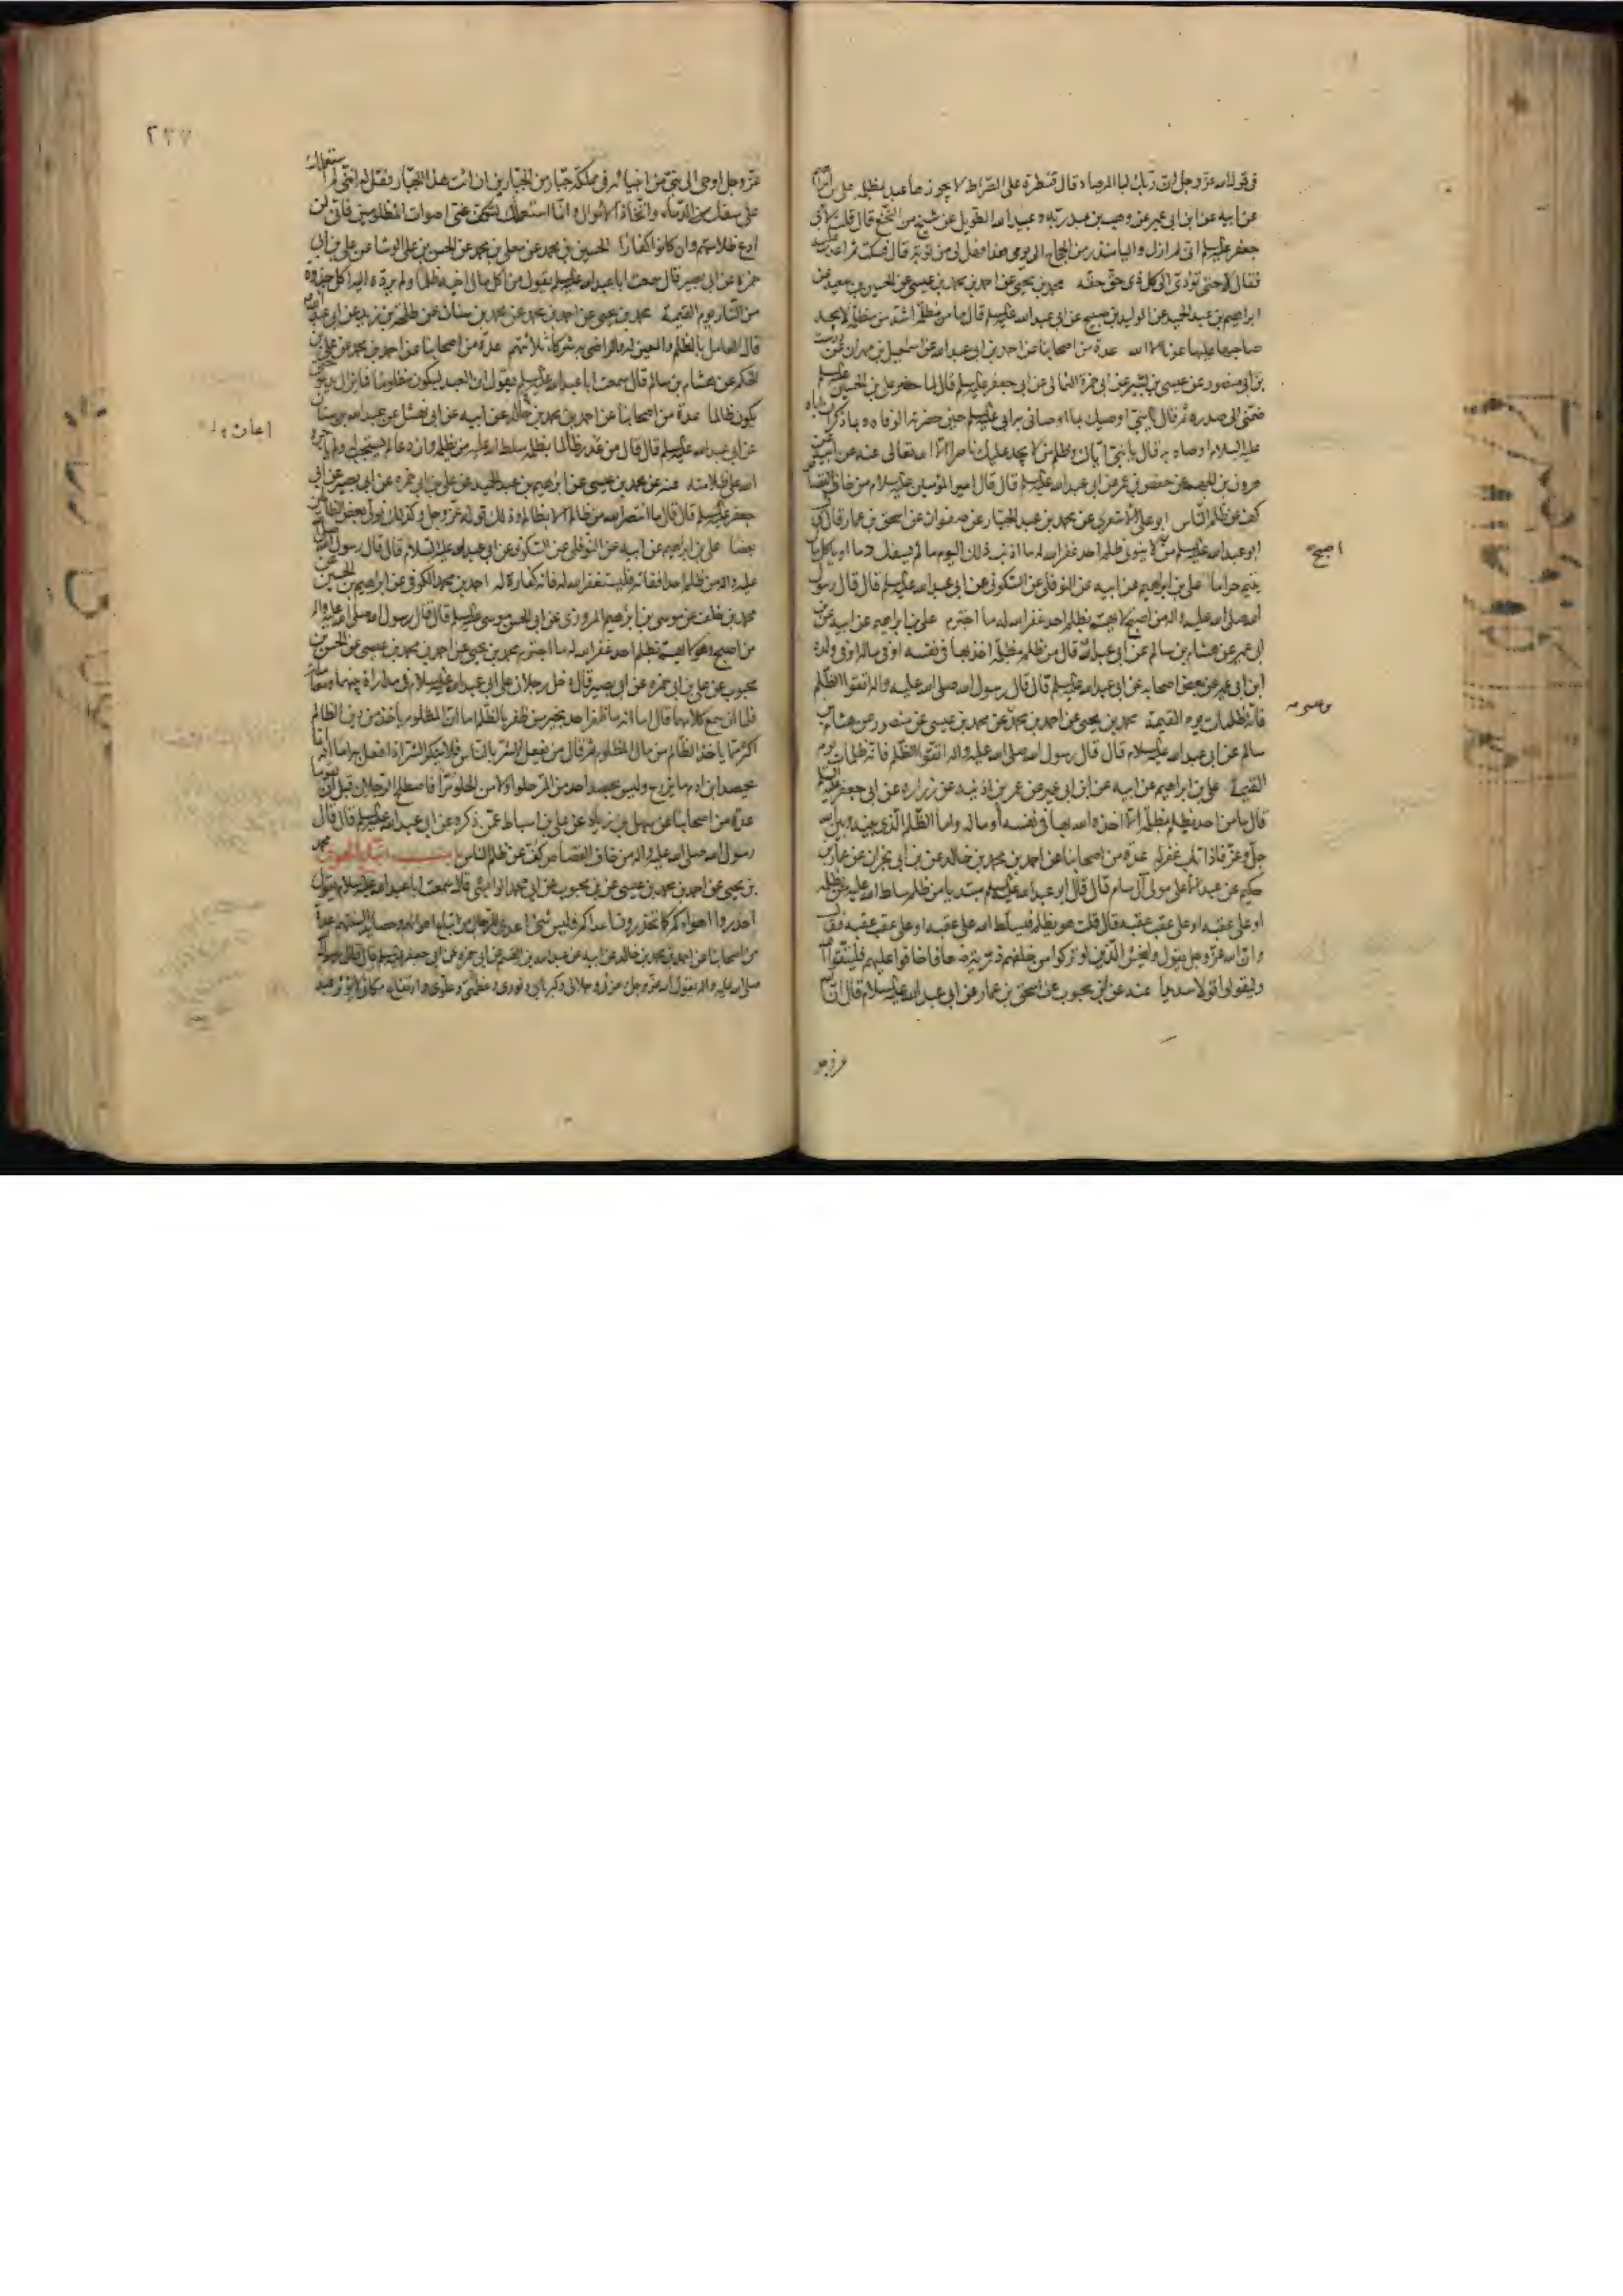 فى قول الله عز وجل ان ربك لبالمرصاد قال قنطرة على الصراط لا يجوزها عبد بمظلمة على بن ابرهيم
عن ابيه عن ابن ابى عمير عن وهب بن عبد ربه وعبيد الله الطويل عن شيخ من النخع قال قلت لابى
جعفر عليه السلم انى لم ازل واليا منذ زمن الحجاج الى يومى هذا فهل لى من توبة قال فسكت ثم اعدت عليه
فقال لا حتى تؤدى الى كل ذى حق حقه محمد بن يحيى عن احمد بن محمد بن عيسى عن الحسين بن سعيد عن
ابراهيم بن عبد الحميد عن الوليد بن صبيح عن ابى عبد الله عليه السلم قال ما من مظلمة اشد من مظلمة لا يجد
صاحبها عليها عونا الا الله عدة من اصحابنا عن احمد بن ابى عبد الله عن اسمعيل بن مهران عن درست
بن ابى منصور عن عيسى بن بشير عن ابى حمزة الثمالى عن ابى جعفر عليه السلم قال لما حضر على بن الحسين عليه السلم
ضمنى الى صدره ثم قال يا بنى اوصيك بما اوصانى به ابى عليه السلم حين حضرته الوفاة وبما ذكر ان اباه
عليه السلام اوصاه به قال يا بنى اياك وظلم من لا يجد عليك ناصرا الا الله تعالى عنه عن ابيه عن
هرون بن الجهم عن حفص بن عمر عن ابى عبد الله عليه السلم قال قال امير المؤمنين عليه السلام من خاف القصاص
كف عن ظلم الناس ابو على الاشعرى عن محمد بن عبد الجبار عن صفوان عن اسحق بن عمار قال قال
ابو عبد الله عليه السلم من لا ينوى ظلم احد غفر الله له ما اذنب ذلك اليوم ما لم يسفك دما او ياكل مال
يتيم حراما على بن ابراهيم عن ابيه عن النوفلى عن السكونى عن ابى عبد الله عليه السلم قال قال رسول
الله صلى الله عليه واله من اصبح لا يهم بظلم احد غفر الله له ما اجترم على بن ابراهيم عن ابيه عن ابن
ابى عمير عن هشام بن سالم عن ابى عبد الله قال من ظلم مظلمة اخذ بها فى نفسه او فى ماله او فى ولده
ابن ابى عمير عن بعض اصحابه عن ابى عبد الله عليه السلم قال قال رسول الله صلى الله عليه واله اتقوا الظلم
فانه ظلمات يوم القيمة محمد بن يحيى عن احمد بن محمد عن محمد بن عيسى عن منصور عن هشام بن
سالم عن ابى عبد الله عليه السلام قال قال رسول الله صلى الله عليه واله اتقوا الظلم فانه ظلمات يوم
القيمة على بن ابراهيم عن ابيه عن ابن ابى عمير عن عمر بن اذينه عن زراره عن ابى جعفر عليه السلم
قال ما من احد يظلم بمظلمة الا اخذه الله بها فى نفسه او ماله واما الظلم الذى بينه وبين الله
جل وعز فاذا تاب غفر له عدة من اصحابنا عن احمد بن محمد بن خالد عن ابن ابى نجران عن عمار بن
حكيم عن عبد الاعلى مولى آل سام قال قال ابو عبد الله عليه السلم مبتديا من ظلم سلط الله عليه من يظلمه
او على عقبه او على عقب عقبه قال قلت هو يظلم فيسلط الله على عقبه او على عقب عقبه فقال
ان الله عز وجل يقول وليخش الذين لو تركوا من خلفهم ذرية ضعافا خافوا عليهم فليتقوا الله
وليقولوا قولا سديدا عنه عن ابن محبوب عن اسحق بن عمار عن ابى عبد الله عليه السلام قال ان الله
اصبح
عز وجل
٢٣٧
عز وجل اوحى الى نبى من انبيائه فى مملكة جبار من الجبارين ان ائت هذا الجبار فقل له اننى لم استعملك
على سفك الدماء واتخاذ الاموال وانما استعملتك لتكف عنى اصوات المظلومين فانى لن
ادع ظلامتهم وان كانوا كفارا الحسين بن محمد عن معلى بن محمد عن الحسن بن على الوشا عن على بن ابى
حمزة عن ابى بصير قال سمعت ابا عبد الله عليه السلم يقول من اكل مال اخيه ظلما ولم يرده اليه اكل جذوة
من النار يوم القيمة محمد بن يحيى عن احمد بن محمد عن محمد بن سنان عن طلحة بن زيد عن ابى عبد الله
قال العامل بالظلم والمعين له والراضى به شركاء ثلاثتهم عدة من اصحابنا عن احمد بن محمد عن على بن
الحكم عن هشام بن سالم قال سمعت ابا عبد الله عليه السلم يقول ان العبد ليكون مظلوما فما يزال يدعو حتى
يكون ظالما عدة من اصحابنا عن احمد بن محمد بن خالد عن ابيه عن ابى نهشل عن عبد الله بن سنان
عن ابى عبد الله عليه السلم قال قال من عذر ظالما بظلمه سلط الله عليه من يظلمه وان دعا لم يستجب له ولم ياجره
الله على ظلامته عنه عن محمد بن عيسى عن ابرهيم بن عبد الحميد عن على بن ابى حمزه عن ابى بصير عن ابى
جعفر عليه السلم قال قال ما انتصر الله من ظالم الا بظالم وذلك قوله عز وجل وكذلك نولى بعض الظالمين
بعضا على بن ابراهيم عن ابيه عن النوفلى عن السكونى عن ابى عبد الله عليه السلام قال قال رسول الله صلى الله
عليه واله من ظلم احدا ففاته فليستغفر الله له فانه كفارة له احمد بن محمد الكوفى عن ابراهيم بن الحسين عن
محمد بن خلف عن موسى بن ابرهيم المروزى عن ابى الحسن موسى عليه السلم قال قال رسول الله صلى الله عليه واله
من اصبح وهو لا يهم بظلم احد غفر الله له ما اجترم محمد بن يحيى عن احمد بن محمد بن عيسى عن الحسن بن
محبوب عن على بن ابى حمزه عن ابى بصير قال دخل رجلان على ابى عبد الله عليه السلام فى مداراة بينهما ومعاملة
فلما ان سمع كلامهما قال اما انه ما ظفر احد بخير من ظفر بالظلم اما ان المظلوم ياخذ من دين الظالم
اكثر مما ياخذ الظالم من مال المظلوم ثم قال من يفعل الشر بالناس فلا ينكر الشر اذا فعل به اما انه انما
يحصد ابن ادم ما يزرع وليس يحصد احد من المر حلوا ولا من الحلو مرا فاصطلح الرجلان قبل ان يقوما
عدة من اصحابنا عن سهل بن زياد عن على بن اسباط عمن ذكره عن ابى عبد الله عليه السلم قال قال
رسول الله صلى الله عليه واله من خاف القصاص كف عن ظلم الناس باب اتباع الهوى محمد
بن يحيى عن احمد بن محمد بن عيسى عن ابن محبوب عن ابى محمد الوابشى قال سمعت ابا عبد الله عليه السلام يقول
احذروا اهواءكم كما تحذرون اعداءكم فليس شئ اعدى للرجال من اتباع اهوائهم وحصائد السنتهم عدة
من اصحابنا عن احمد بن محمد بن خالد عن ابيه عن عبد الله بن القسم عن ابى حمزه عن ابى جعفر عليه السلم قال قال رسول الله
صلى الله عليه واله يقول الله عز وجل وعزتى وجلالى وكبريائى ونورى وعظمتى وعلوى وارتفاع مكانى لا يؤثر عبد
اعان